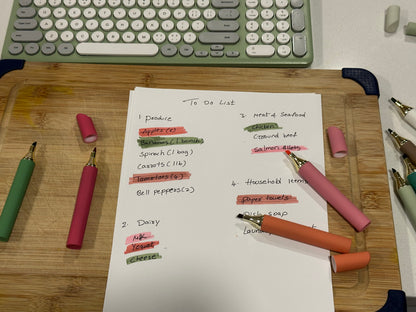 To Do List
1. Produce
Apples (6)
Bananas (1 bunch)
Spinach (1 bag)
Carrots (1 lb)
Tomatoes (4)
Bell peppers (2)
2. Dairy
Milk
Yogurt
Cheese
3. Meat & Seafood
Chicken
Ground beef
Salmon fillets
4. Household items
Paper towels
Dish soap